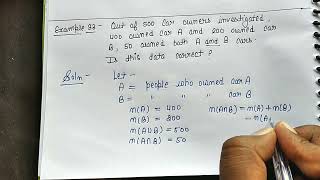 Example 23:- Out of 500 car owners investigated,
400 owned car A and 200 owned car
B, 50 owned both A and B cars.
Is this data correct?
Soln:- Let -
A = people who owned car A
B = " " " car B
n(A) = 400 n(A∩B) = n(A) + n(B)
n(B) = 200 - n(A
n(A∪B) = 500
n(A∩B) = 50